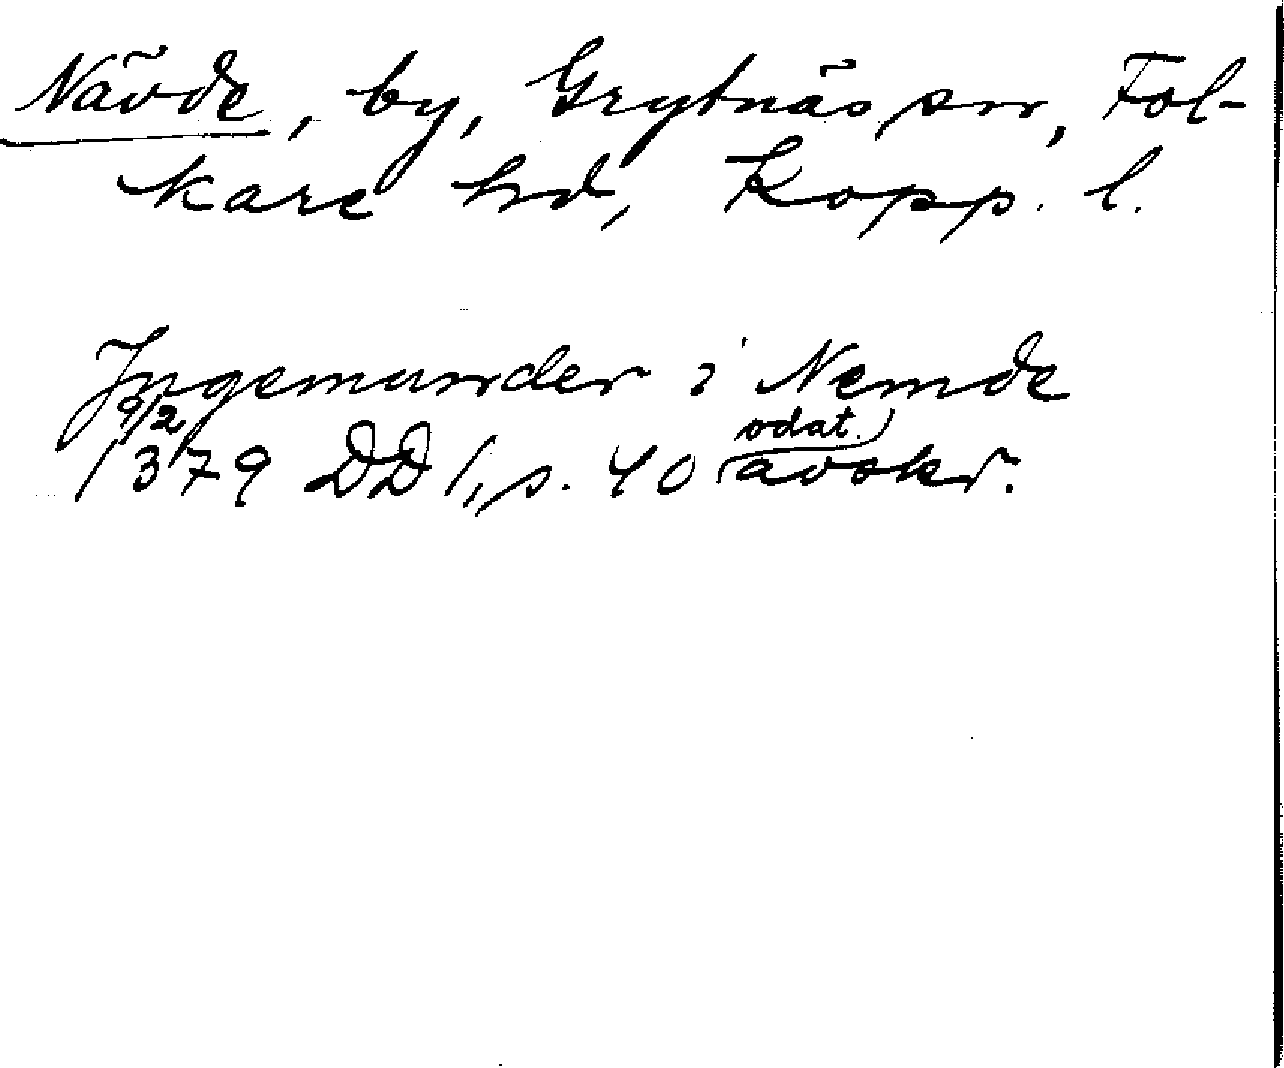 Nävde, by, Grytnäs sn, Fol-
kare hd, Kopp. l.
Jngemunder i Nemde
9/2
1379 DD 1, s. 40 (odat.) avskr.